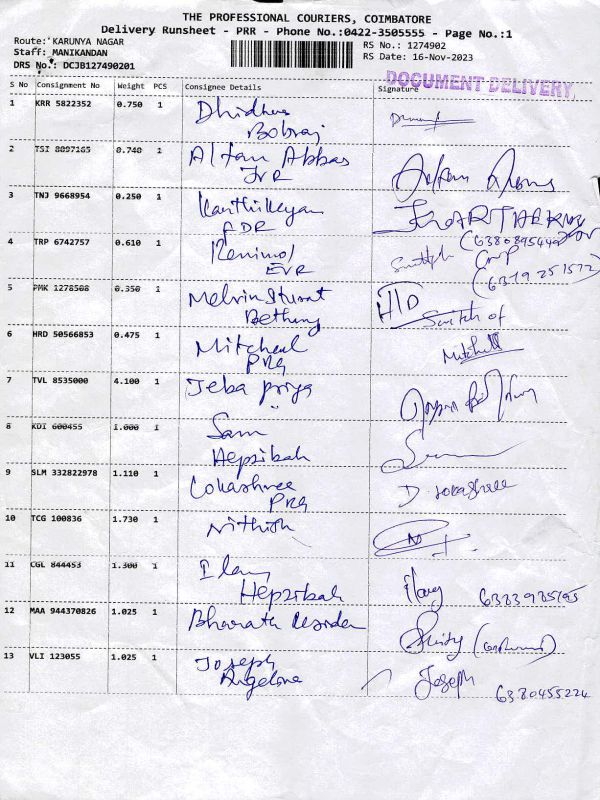 THE PROFESSIONAL COURIERS, COIMBATORE
Delivery Runsheet - PRR - Phone No.:0422-3505555 - Page No.:1
Route: KARUNYA NAGAR
RS No.: 1274902
Staff: MANIKANDAN
RS Date: 16-Nov-2023
DRS No.: DCJB127490201
DOCUMENT DELIVERY
S No Consignment No Weight PCS Consignee Details Signature
1 KRR 5822352 0.750 1
2 TSI 8097165 0.740 1 Altam Abbas
JVR
3 TNJ 9668954 0.250 1 Karthikeyan
4 TRP 6742757 0.610 1 Renimol
EVR
5 PMK 1278508 0.350 1 Melvin Sturat H/D
Bethany Switch of
6 HRD 50566853 0.475 1 Mitcheal Mitchell
PRG
7 TVL 8535000 4.100 1 Jeba priya
8 KDI 600455 1.000 1 Sam
Hepzibah
9 SLM 332822978 1.110 1
PRG
10 TCG 100836 1.730 1 Nithish
11 CGL 844453 1.300 1
Hepzibah
12 MAA 944370826 1.025 1 Bharath
13 VLI 123055 1.025 1 Joseph Joseph
6380455224